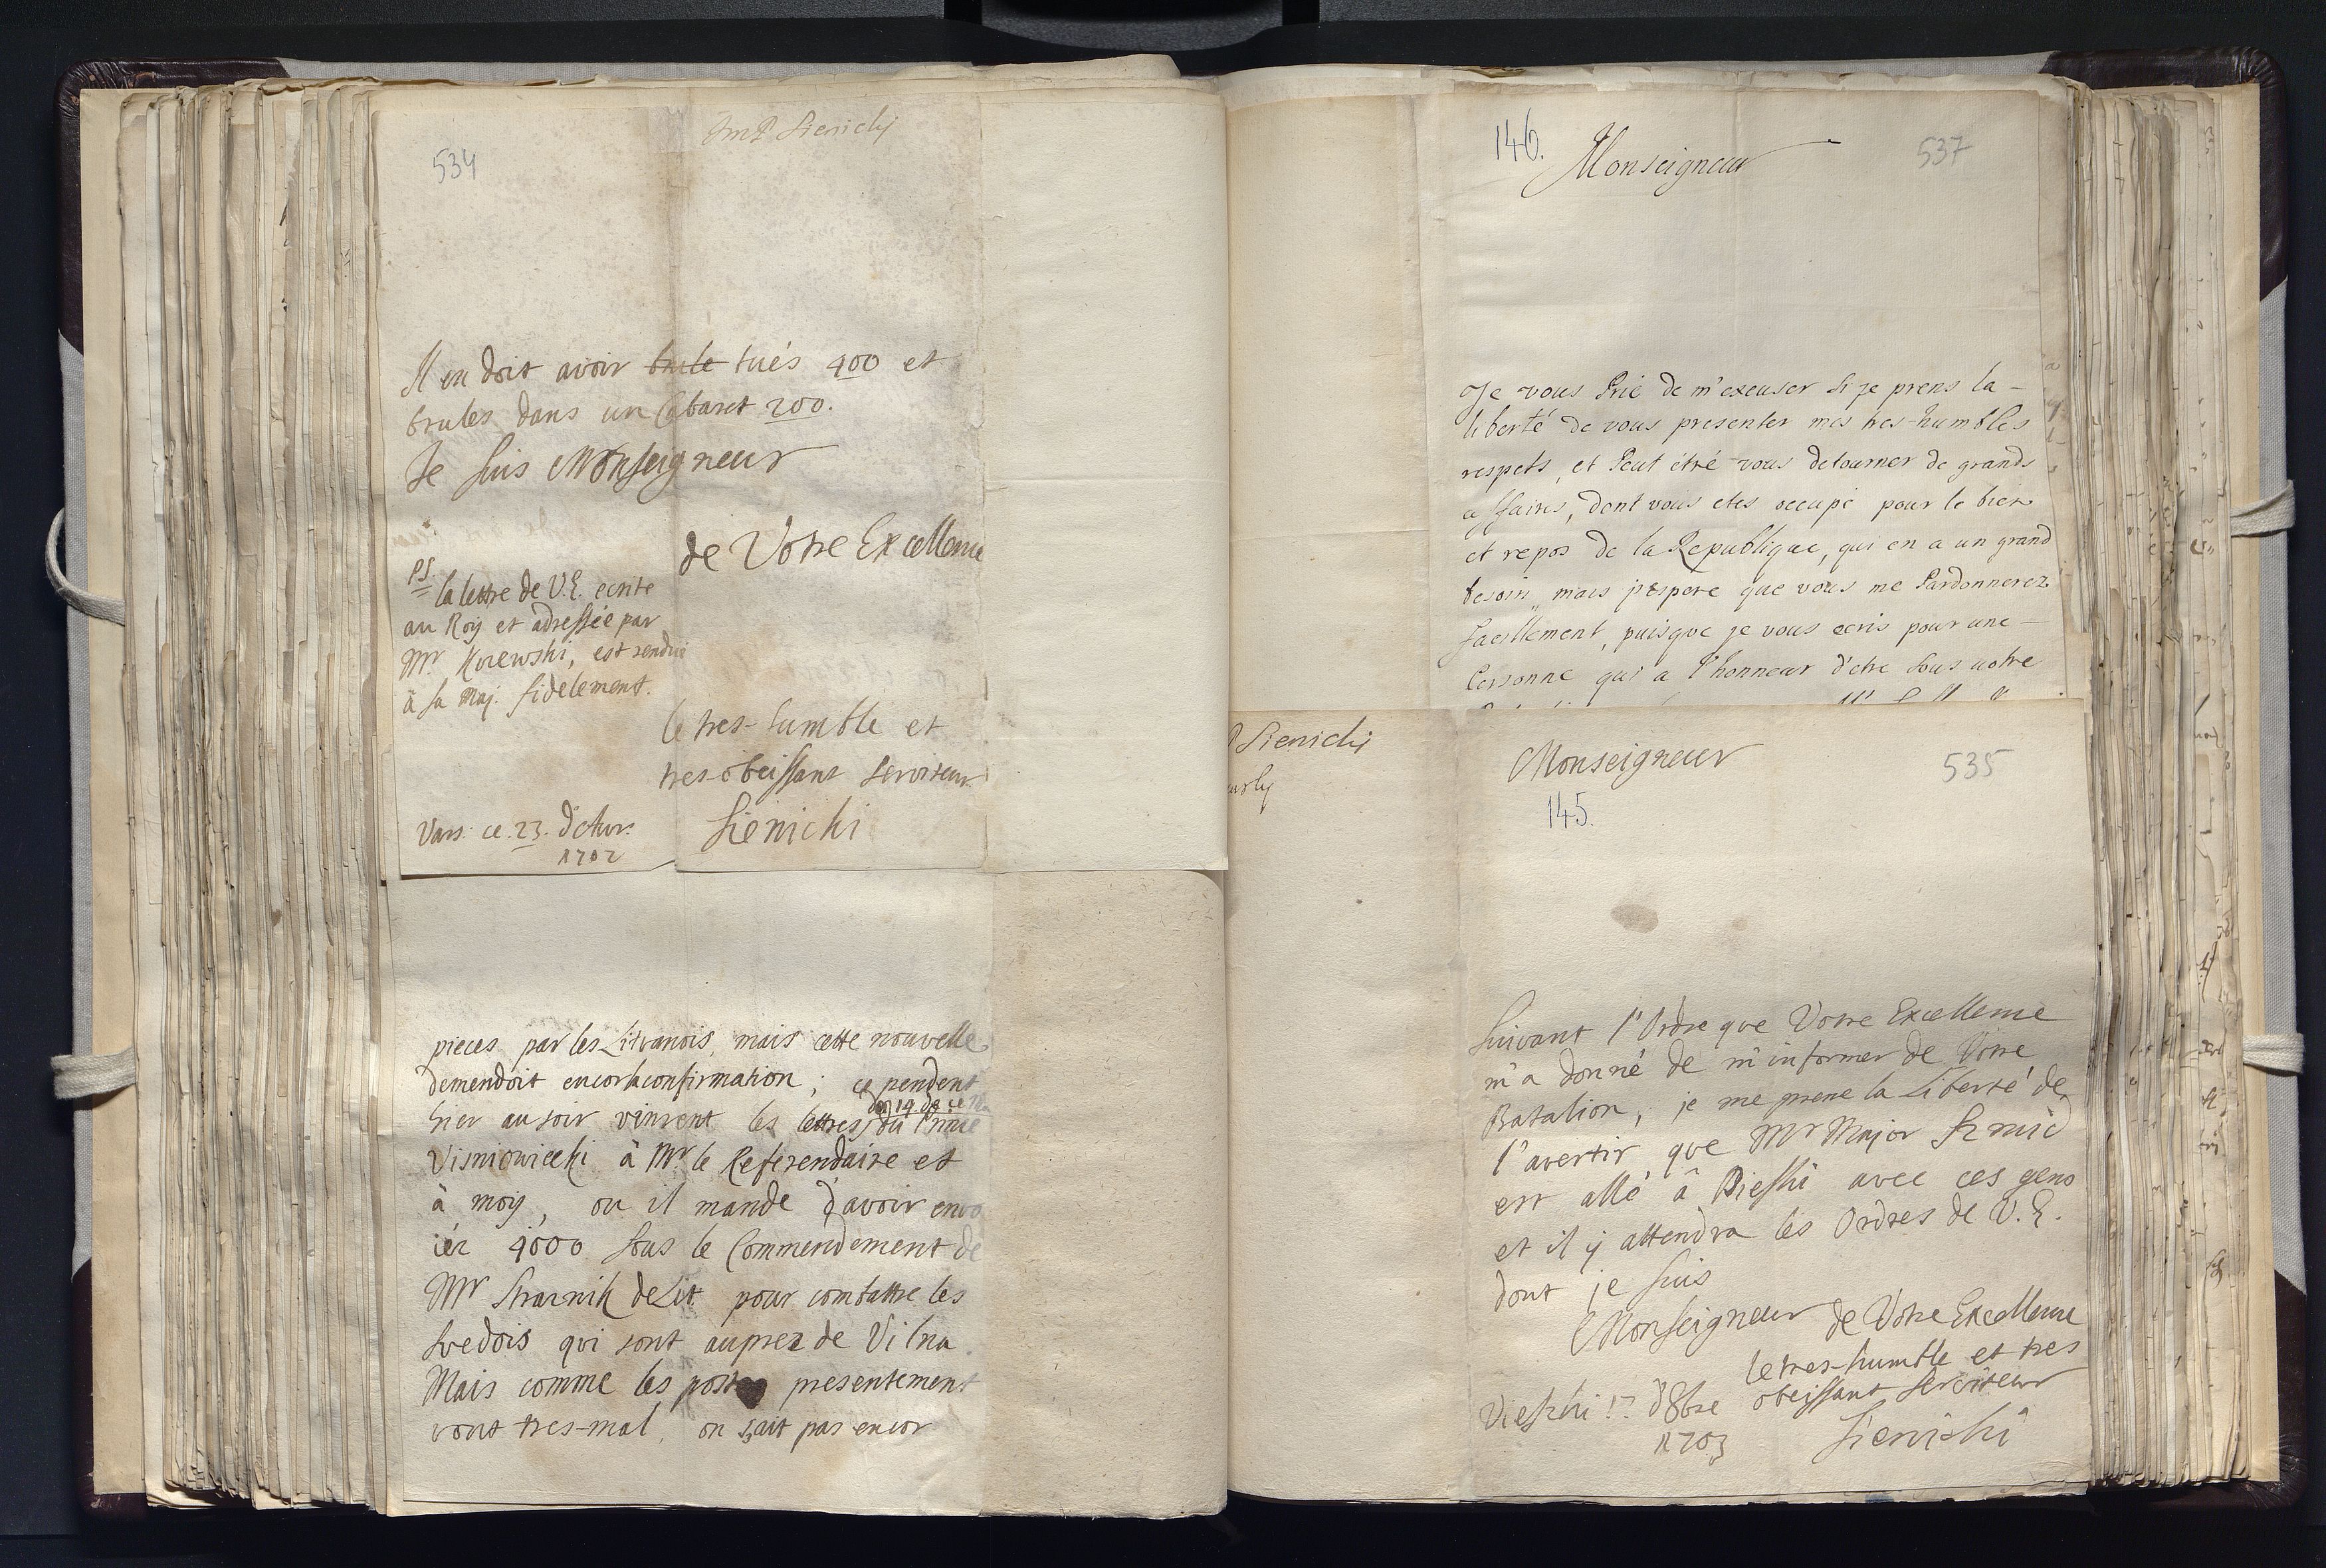 JmP Sienicki
534
Il en doit avoir brule tués 400 et
brules dans un Cabaret 200.
Je suis Monseigneur
de Votre Excellence
PS.
la lettre de V.E. ecrite
au Roy et adressée par
Mr. Kirewski, est rendue
à sa Maj. fidelement.
le tres-humble et
tres obeissant serviteur
Sienicki
Vars: ce 23. d'Avr.
1702
pieces par les Litvanois, mais cette nouvelle
demendoit encor la confirmation; ce pendent
du 14 de ce
hier au soir vinrent les lettres du Prince
Visniowiecki à Mr. le Referendaire et
à moy, ou il mande d'avoir envo
iér 4000 sous le Commendement de
Mr Straznik de Lit. pour combattre les
Svedois qui sont auprez de Vilna.
Mais comme les postes presentement
vont tres-mal, on sçait pas encor
146.
Monseigneur
537
Je vous Prie de m'excuser si je prens la -
liberté de vous presenter mes tres-humbles
respets, et Peut étre vous detourner de grands
affaires, dont vous etes occupé pour le bien
et repos de la Republique, qui en a un grand
besoin, mais j'espere que vous me Pardonnerez
facillement, puisque je vous ecris pour une -
Personne qui a l'honneur d'etre sous votre
P Sienicki
Monseigneur
535
145.
Suivant l'Ordre que Votre Excellence
m'a donné de m'informer de Vôtre
Batalion, je me prene la Liberté de
l'avertir que Mr Major Szmid
est allé à Pieski avec ces gens
et il y attendra les Ordres de V.E.
dont je suis
Monseigneur de Vôtre Excellence
le tres-humble et tres
obeissant serviteur
d'8bre
1703
Sienicki